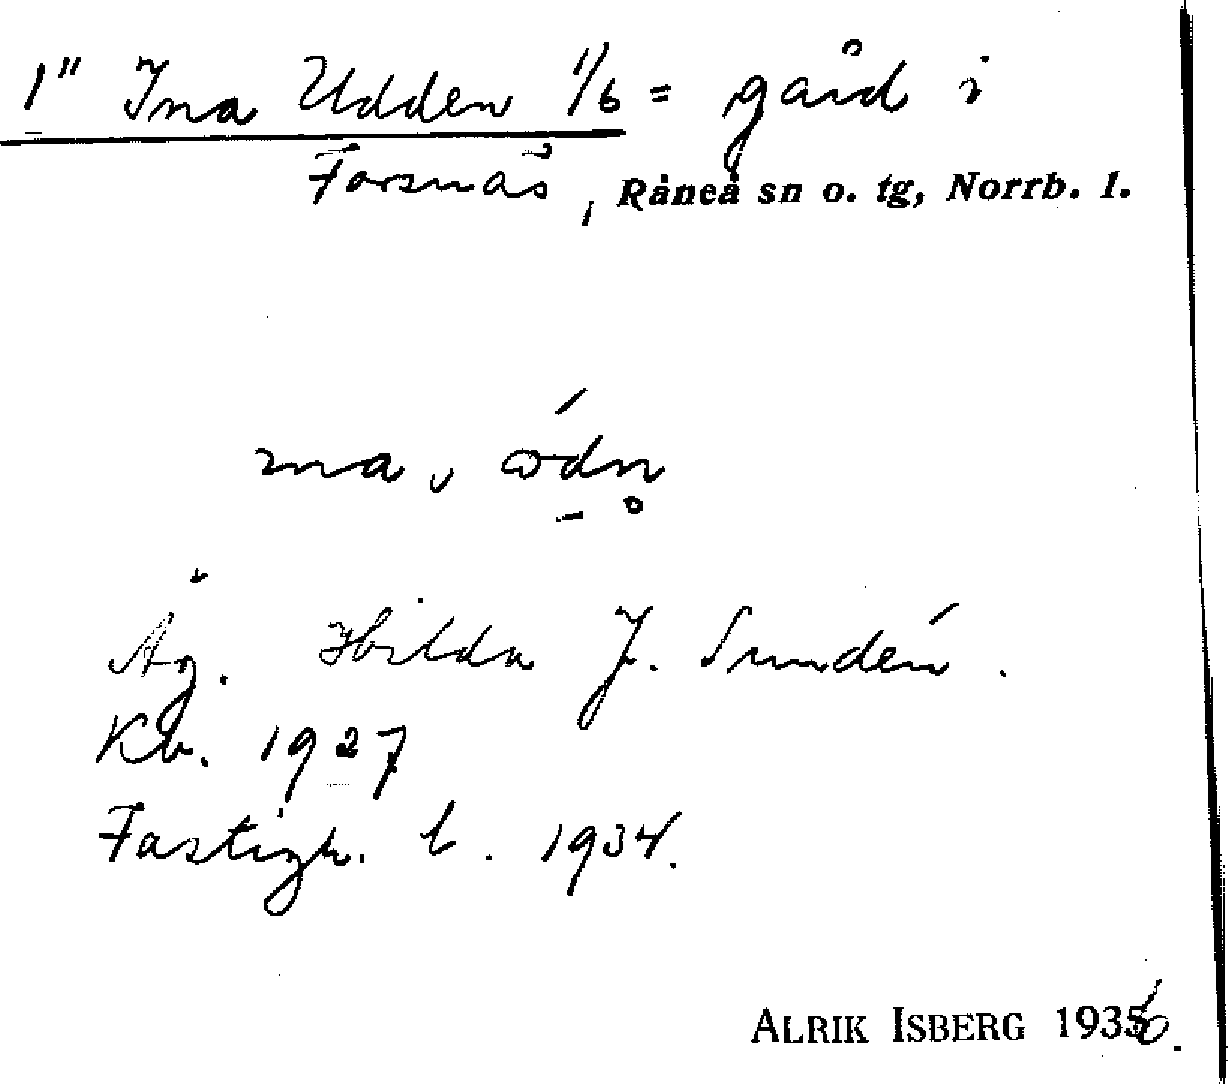 1" Ina Udden 1/6 = gård i
Forsnäs, Råneå sn o. tg, Norrb. l.
Äg. Hilda J. Sundén.
Kb. 1927
Fastigh. b. 1934.
ALRIK ISBERG 1936.